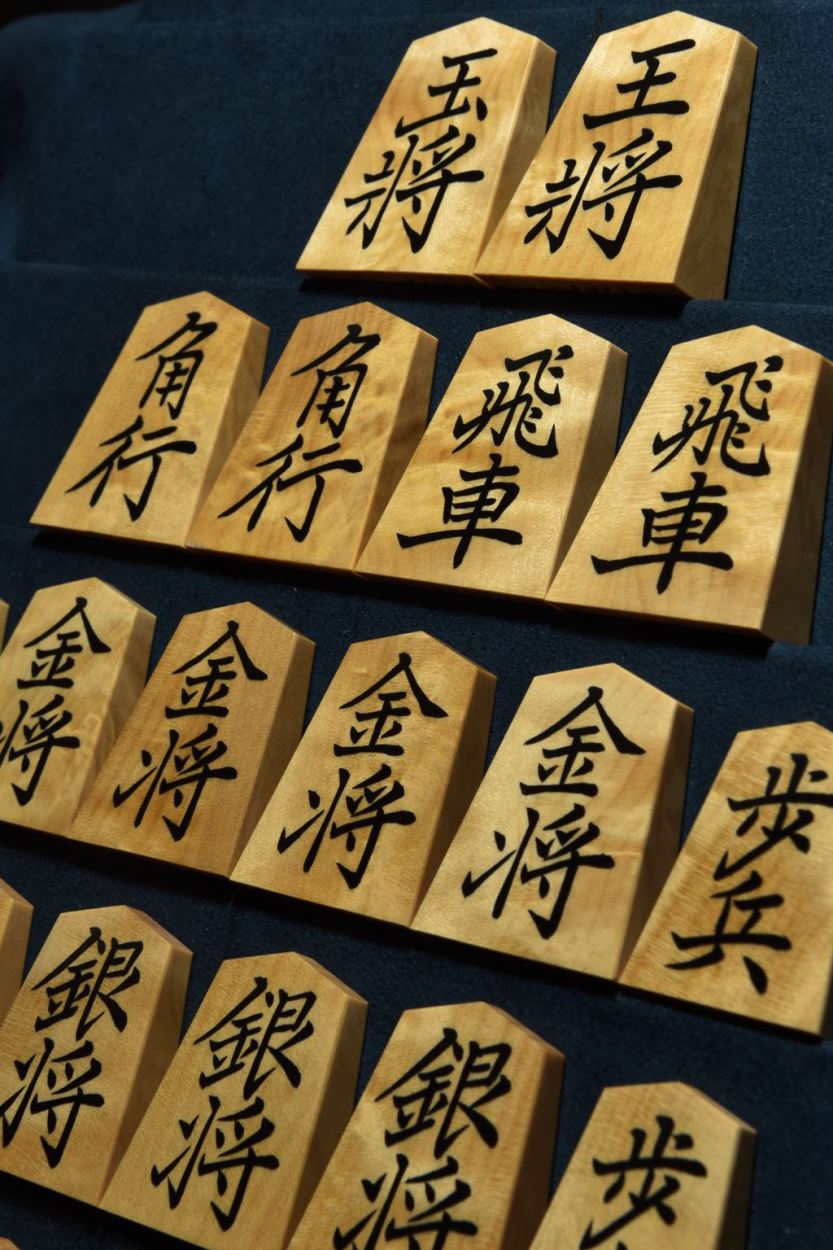 玉将
王将
角行
角行
飛車
飛車
金将
金将
金将
金将
歩兵
銀将
銀将
銀将
歩